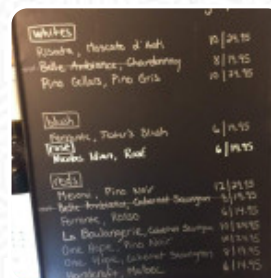 whites
Risata, Moscato d'Asti 10 | 29.95
Belle Ambiance, Chardonnay 8 | 19.95
Pino Cellars, Pino Gris 10 | 29.95
blush
Ferrante, Jester's Blush 6 | 19.95
rosé
Nicolas Idiart, Rosé 6 | 19.95
reds
Meiomi, Pino Noir 12 | 29.95
Belle Ambiance, Cabernet Sauvignon 8 | 19.95
Ferrante, Rosso 6 | 14.95
La Boulangerie, Cabernet Sauvignon
One Hope, Pino Noir
One Hope, Cabernet Sauvignon
Malbec